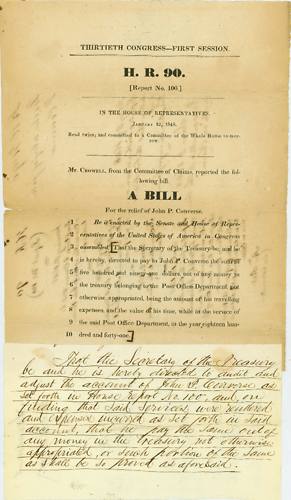 THIRTIETH CONGRESS—FIRST SESSION.
H. R. 90.
[Report No. 100.]
IN THE HOUSE OF REPRESENTATIVES.
January 12, 1848.
Read twice, and committed to a Committee of the Whole House to-mor-
row.
Mr. Crowell, from the Committee of Claims, reported the fol-
lowing bill:
A BILL
For the relief of John P. Converse.
1 Be it enacted by the Senate and House of Repre-
2 sentatives of the United States of America in Congress
3 assembled, That the Secretary of the Treasury be, and he
4 is hereby, directed to pay to John P. Converse the sum of
5 five hundred and ninety-one dollars, out of any money in
6 the treasury belonging to the Post Office Department, not
7 otherwise appropriated, being the amount of his travelling
8 expenses, and the value of his time, while in the service of
9 the said Post Office Department, in the year eighteen hun-
10 dred and forty-one.
That the Secretary of the Treasury
be and he is hereby directed to audit and
adjust the account of John P. Converse as
set forth in House report No. 100, and, on
finding that said services were rendered
and expenses incurred as set forth in said
account, that he pay the same out of
any money in the treasury not otherwise
appropriated, or such portion of the same
as shall be so proved as aforesaid.